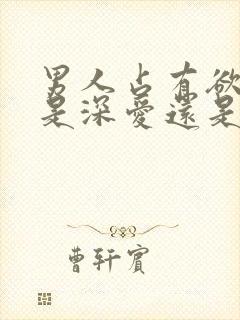 男人占有欲
是深愛還是
曹軒賓